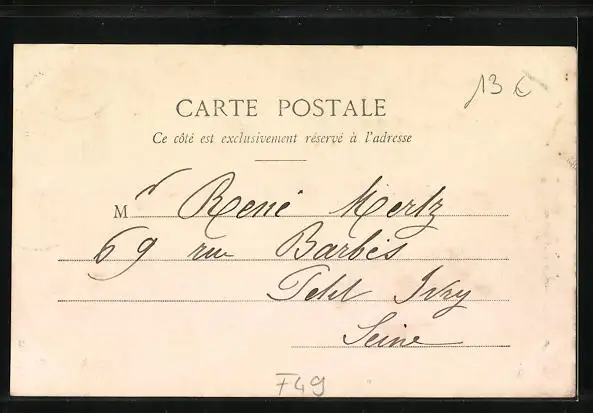 13 €
CARTE POSTALE
Ce côté est exclusivement réservé à l'adresse
Mr René Mertz
69 rue Barbès
Petit Ivry
Seine
F49